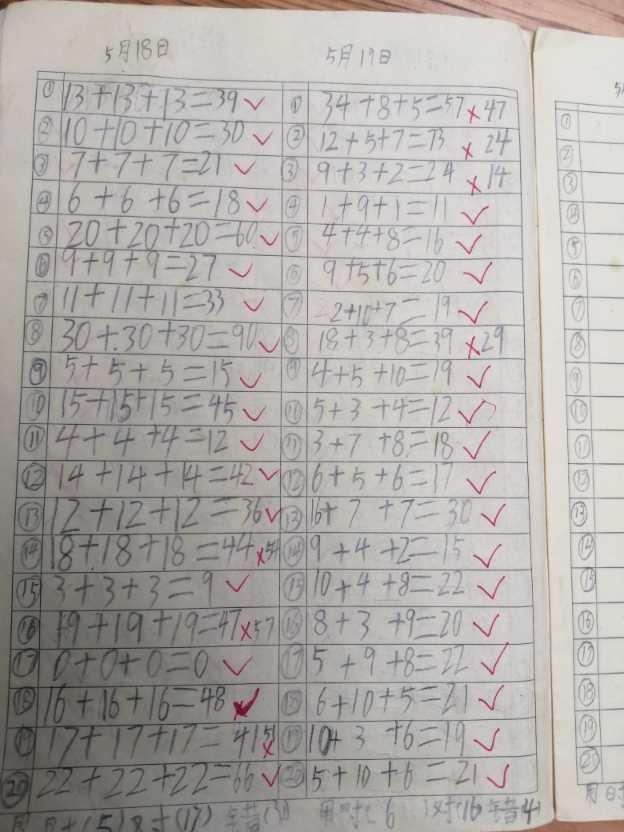 5月18日
① 13+13+13=39 ✓
② 10+10+10=30 ✓
③ 7+7+7=21 ✓
④ 6+6+6=18 ✓
⑤ 20+20+20=60 ✓
⑥ 9+9+9=27 ✓
⑦ 11+11+11=33 ✓
⑧ 30+30+30=90 ✓
⑨ 5+5+5=15 ✓
⑩ 15+15+15=45 ✓
⑪ 4+4+4=12 ✓
⑫ 14+14+14=42 ✓
⑬ 12+12+12=36 ✓
⑭ 18+18+18=44 ×54
⑮ 3+3+3=9 ✓
⑯ 19+19+19=47 ×57
⑰ 0+0+0=0 ✓
⑱ 16+16+16=48 ✓
⑲ 17+17+17=41 ×51
⑳ 22+22+22=66 ✓
5月19日
① 34+8+5=57 × 47
② 12+5+7=73 × 24
③ 9+3+2=24 ×14
④ 1+9+1=11 ✓
⑤ 4+4+8=16 ✓
⑥ 9+5+6=20 ✓
⑦ 2+10+7=19 ✓
⑧ 18+3+8=39 ×29
⑨ 4+5+10=19 ✓
⑩ 5+3+4=12 ✓
⑪ 3+7+8=18 ✓
⑫ 6+5+6=17 ✓
⑬ 16+7+7=30 ✓
⑭ 9+4+2=15 ✓
⑮ 10+4+8=22 ✓
⑯ 8+3+9=20 ✓
⑰ 5+9+8=22 ✓
⑱ 6+10+5=21 ✓
⑲ 10+3+6=19 ✓
⑳ 5+10+6=21 ✓
①
②
③
④
⑤
⑥
⑦
⑧
⑨
⑩
⑪
⑫
⑬
⑭
⑮
⑯
⑰
⑱
⑲
⑳